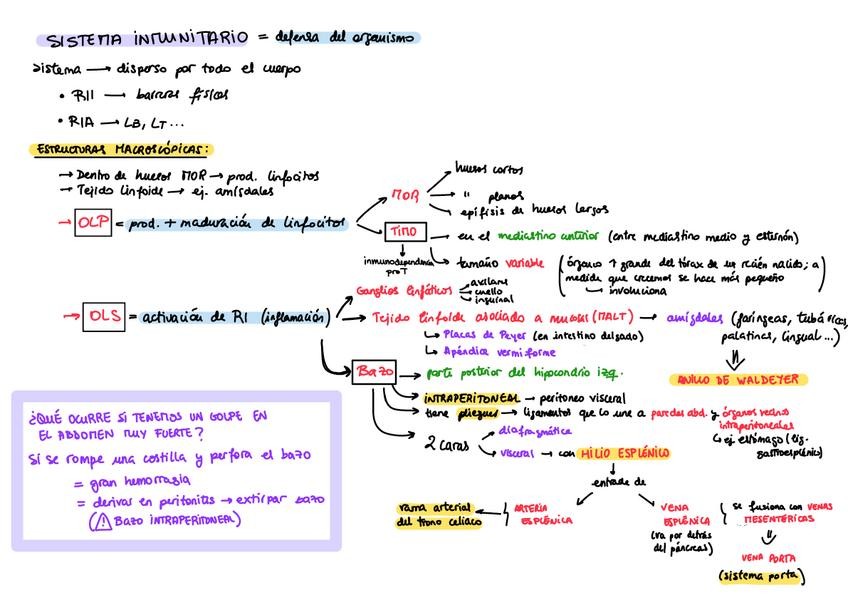 SISTEMA INMUNITARIO = defensa del organismo
Sistema → disperso por todo el cuerpo
• RII → barreras físicas
• RIA → LB, LT...
ESTRUCTURAS MACROSCÓPICAS:
→ Dentro de huesos MOR → prod. linfocitos
→ Tejido linfoide → ej. amígdalas
→ OLP = prod. + maduración de linfocitos
MOR
huesos cortos
" planos
epífisis de huesos largos
TIMO
→ en el mediastino anterior (entre mediastino medio y esternón)
inmunodependencia
pro T
tamaño variable (órgano + grande del tórax de un recién nacido; a
medida que crecemos se hace más pequeño
involuciona)
→ OLS = activación de RI (inflamación)
Ganglios linfáticos
axilares
cuello
inguinal
Tejido linfoide asociado a mucosas (MALT) → amígdalas (faríngeas, tubáricas,
palatinas, lingual...)
Placas de Peyer (en intestino delgado)
Apéndice vermiforme
ANILLO DE WALDEYER
Bazo → parte posterior del hipocondrio izq.
INTRAPERITONEAL → peritoneo visceral
tiene pliegues → ligamentos que lo une a paredes abd. y órganos vecinos
intraperitoneales
ej. estómago (lig.
gastroesplénico)
2 caras
diafragmática
visceral → con HILIO ESPLÉNICO
entrada de
rama arterial
del tronco celiaco
ARTERIA
ESPLÉNICA
VENA
ESPLÉNICA
(va por detrás
del páncreas)
se fusiona con VENAS
MESENTÉRICAS
VENA PORTA
(sistema porta)
¿QUÉ OCURRE SI TENEMOS UN GOLPE EN
EL ABDOMEN MUY FUERTE?
Si se rompe una costilla y perfora el bazo
= gran hemorragia
= derivar en peritonitis → extirpar bazo
(⚠ Bazo INTRAPERITONEAL)